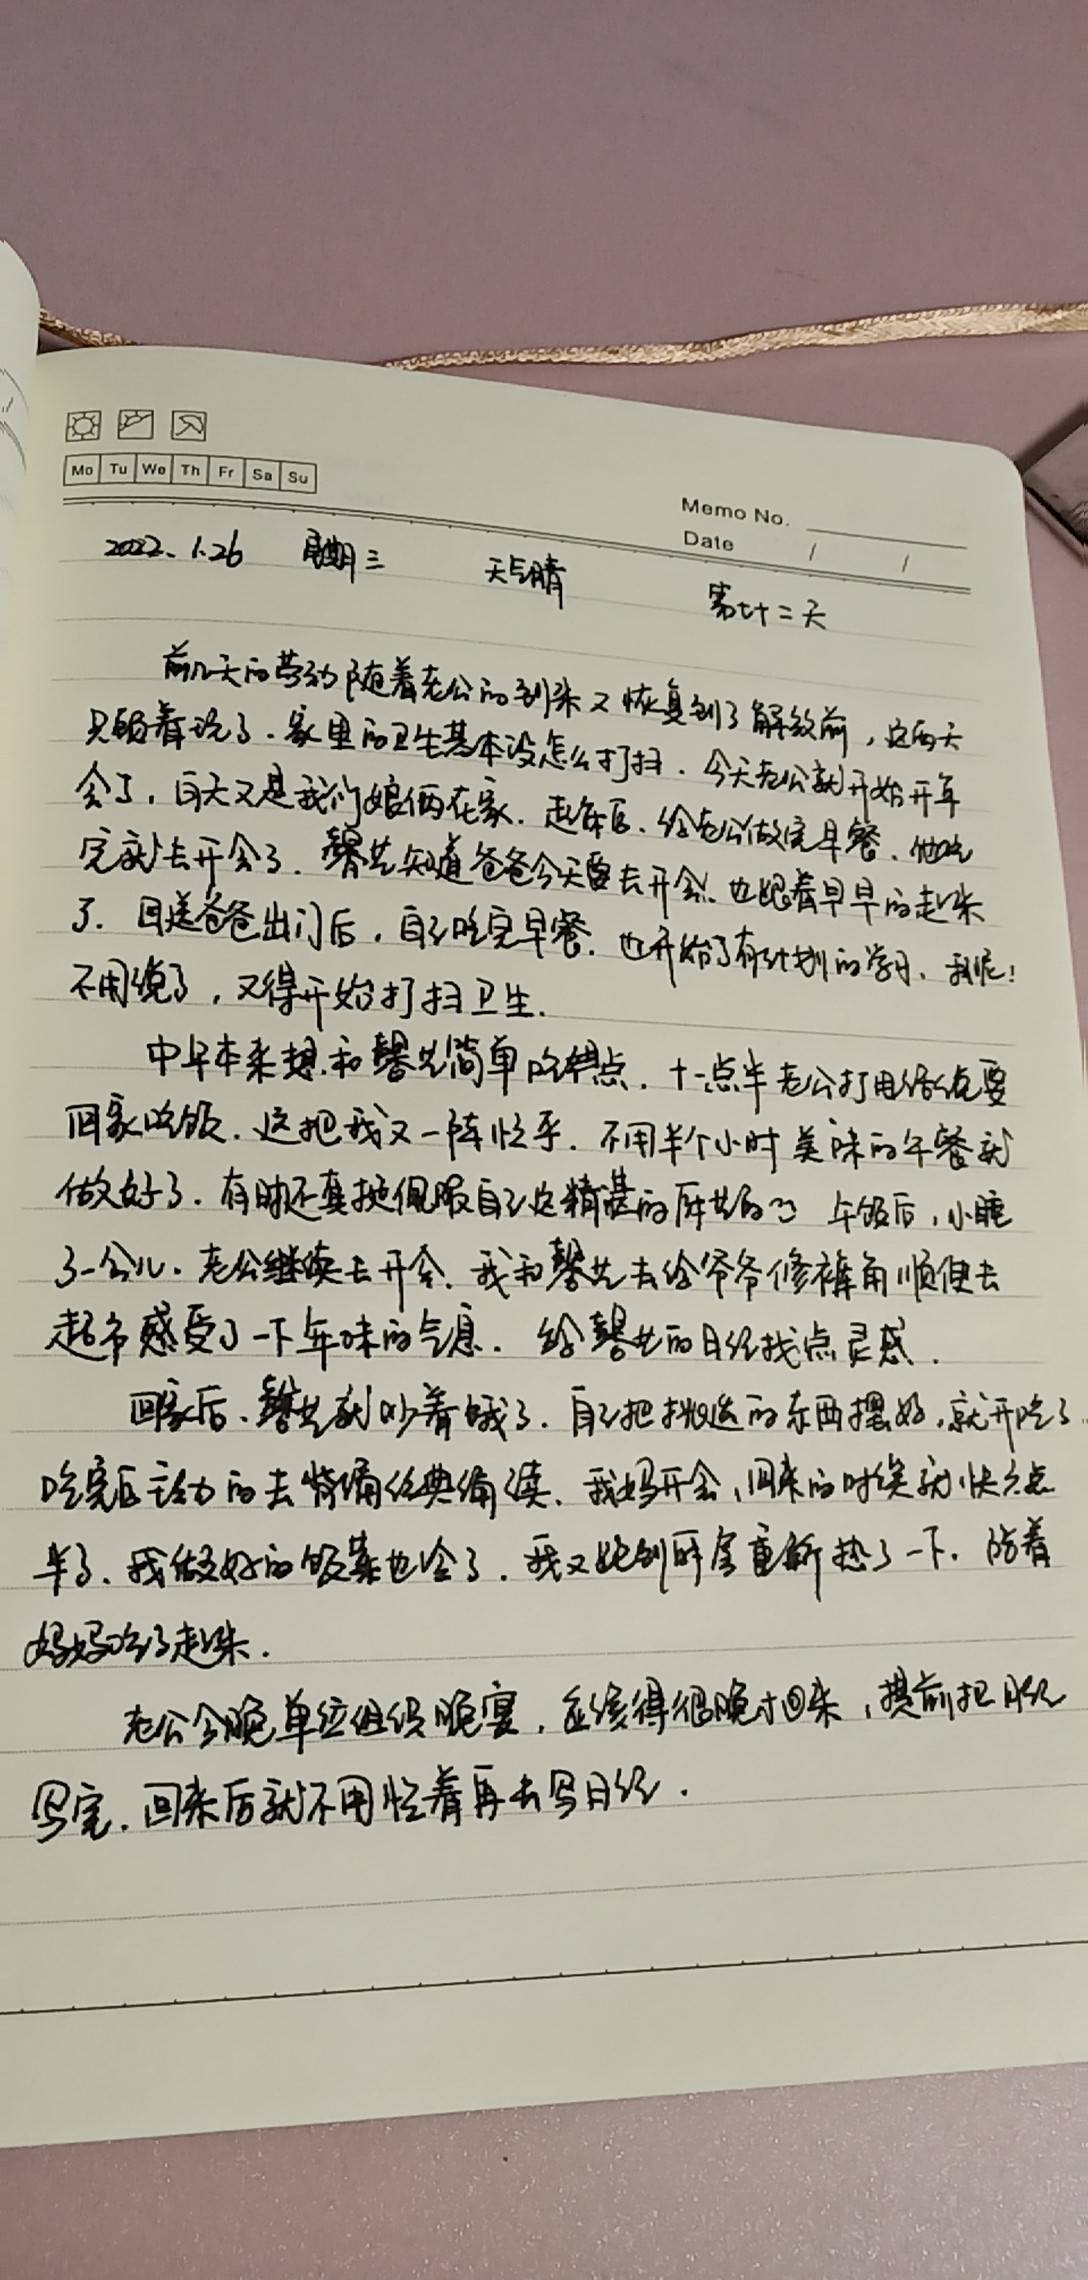 Mo Tu We Th Fr Sa Su
Memo No.
Date / /
2022.1.26 星期三 天气晴 第七十二天
前几天的劳动随着老公的到来又恢复到了解放前，这两天
只顾着玩了.家里的卫生基本没怎么打扫.今天老公就开始开年
会了，白天又是我们娘俩在家.起床后.给老公做完早餐、他吃
完就去开会了.馨艺知道爸爸今天要去开会.也跟着早早的起来
了.目送爸爸出门后，自己吃完早餐.也开始了有计划的学习、我呢！
不用说了，又得开始打扫卫生.
中午本来想和馨艺简单吃点.十一点半老公打电话说要
回家吃饭.这把我又一阵忙乎.不用半个小时美味的午餐就
做好了.有时还真挺佩服自己这精湛的厨艺 午饭后，小睡
了一会儿.老公继续去开会.我和馨艺去给爷爷修裤角顺便去
超市感受了一下年味的气息.给馨艺的日记找点灵感.
回家后、馨艺就吵着饿了.自己把挑选的东西摆好，就开吃了.
吃完后主动的去背诵经典诵读、我妈开会，回来的时候就快六点
半了、我做好的饭菜也冷了.我又跑到厨房重新热了一下.陪着
妈妈吃了起来.
老公今晚单位组织晚宴，应该得很晚才回来，提前把日记
写完.回来后就不用忙着再去写日记.